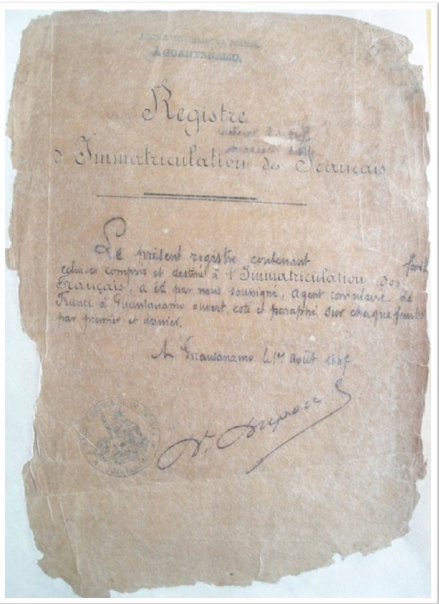 A GUANTANAMO
Registre
d'Immatriculation des Français
Le présent registre contenant
celui-ci compris et destiné à l'Immatriculation des
Français, a été par nous soussigné, agent consulaire de
France à Guantanamo ouvert coté et paraphé sur chaque feuillet
par premier et dernier.
A Guantanamo le 1er août 188